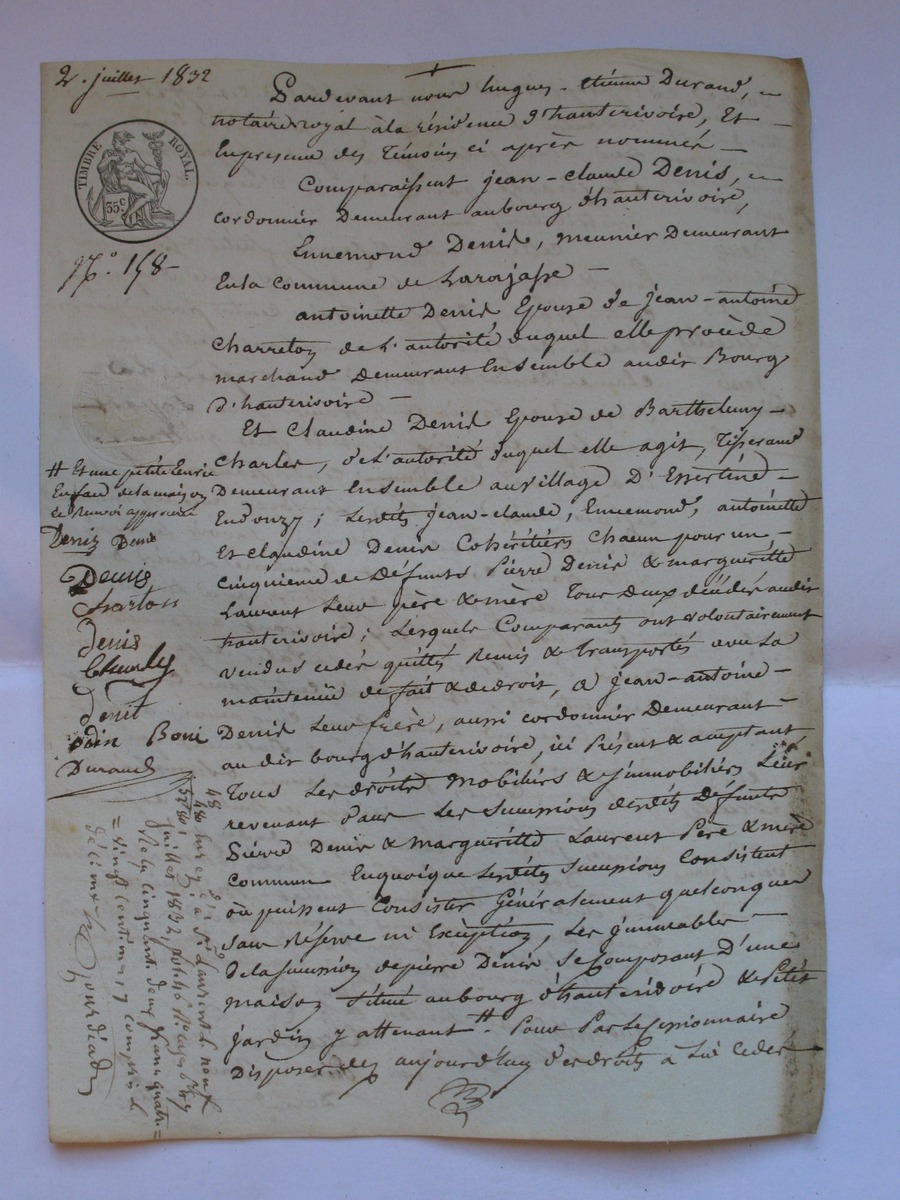 2. juillet 1832
TIMBRE ROYAL.
35c
N.º 158
Pardevant nous hugues-étienne Durand,
notaire royal à la résidence d'hauterivoire, Et
En presence des Témoins ci après nommés
Comparaissent jean-claude Denis,
cordonnier Demeurant au bourg d'hauterivoire,
Ennemond Denis, meunier Demeurant
En la commune de Larajasse
antoinette Denis Epouse de jean-antoine
Charreton de L'autorité duquel elle procède
marchand Demeurant Ensemble audit Bourg
d'hauterivoire
Et Claudine Denis Epouse de Barthelemy
Charles, de L'autorité duquel elle agit, Tisserand
Demeurant Ensemble au village D'Essertine
En Donzy; Lesdits jean-claude, Ennemond, antoinette
Et claudine Denis Cohéritiers Chacun pour un
cinquieme de Défunts Pierre Denis & margueritte
Laurent Leur père & mère Tous deux décédés audit
hauterivoire; Lesquels Comparants ont volontairement
vendus cédés quittés Remis & transportés avec La
maintenüe de fait & de droit, à jean-antoine
Denis Leur frère, aussi cordonnier Demeurant
au dit bourg d'hauterivoire, ici Présent & acceptant,
Tous Les droits Mobiliers & jmmobiliers Leur
revenant Dans Les Successions desdits Défunts
Pierre Denis & margueritte Laurent Père & mère
commun En quoique Lesdits Successions Consistent
ou puissent Consister Généralement quelconques
sans Réserve ni Exception, Les jmmeubles
de la succession de pierre Denis Se Composant D'une
maison située au bourg d'hauterivoire & Petit
jardin y attenant # Pour Par Le Cessionnaire
Disposer dès aujourd'huy des droits à Lui cédés
# Et une petite Ecurie
En face de la maison
Ce Renvoi approuvé
Denis Denis
Denis
Charton
Denis
Charles
Denis
Boni
Durand
à St. Laurent L. neuf
Juillet 1832
cinquante deux francs quatre
vingt centimes y compris L.
Décime